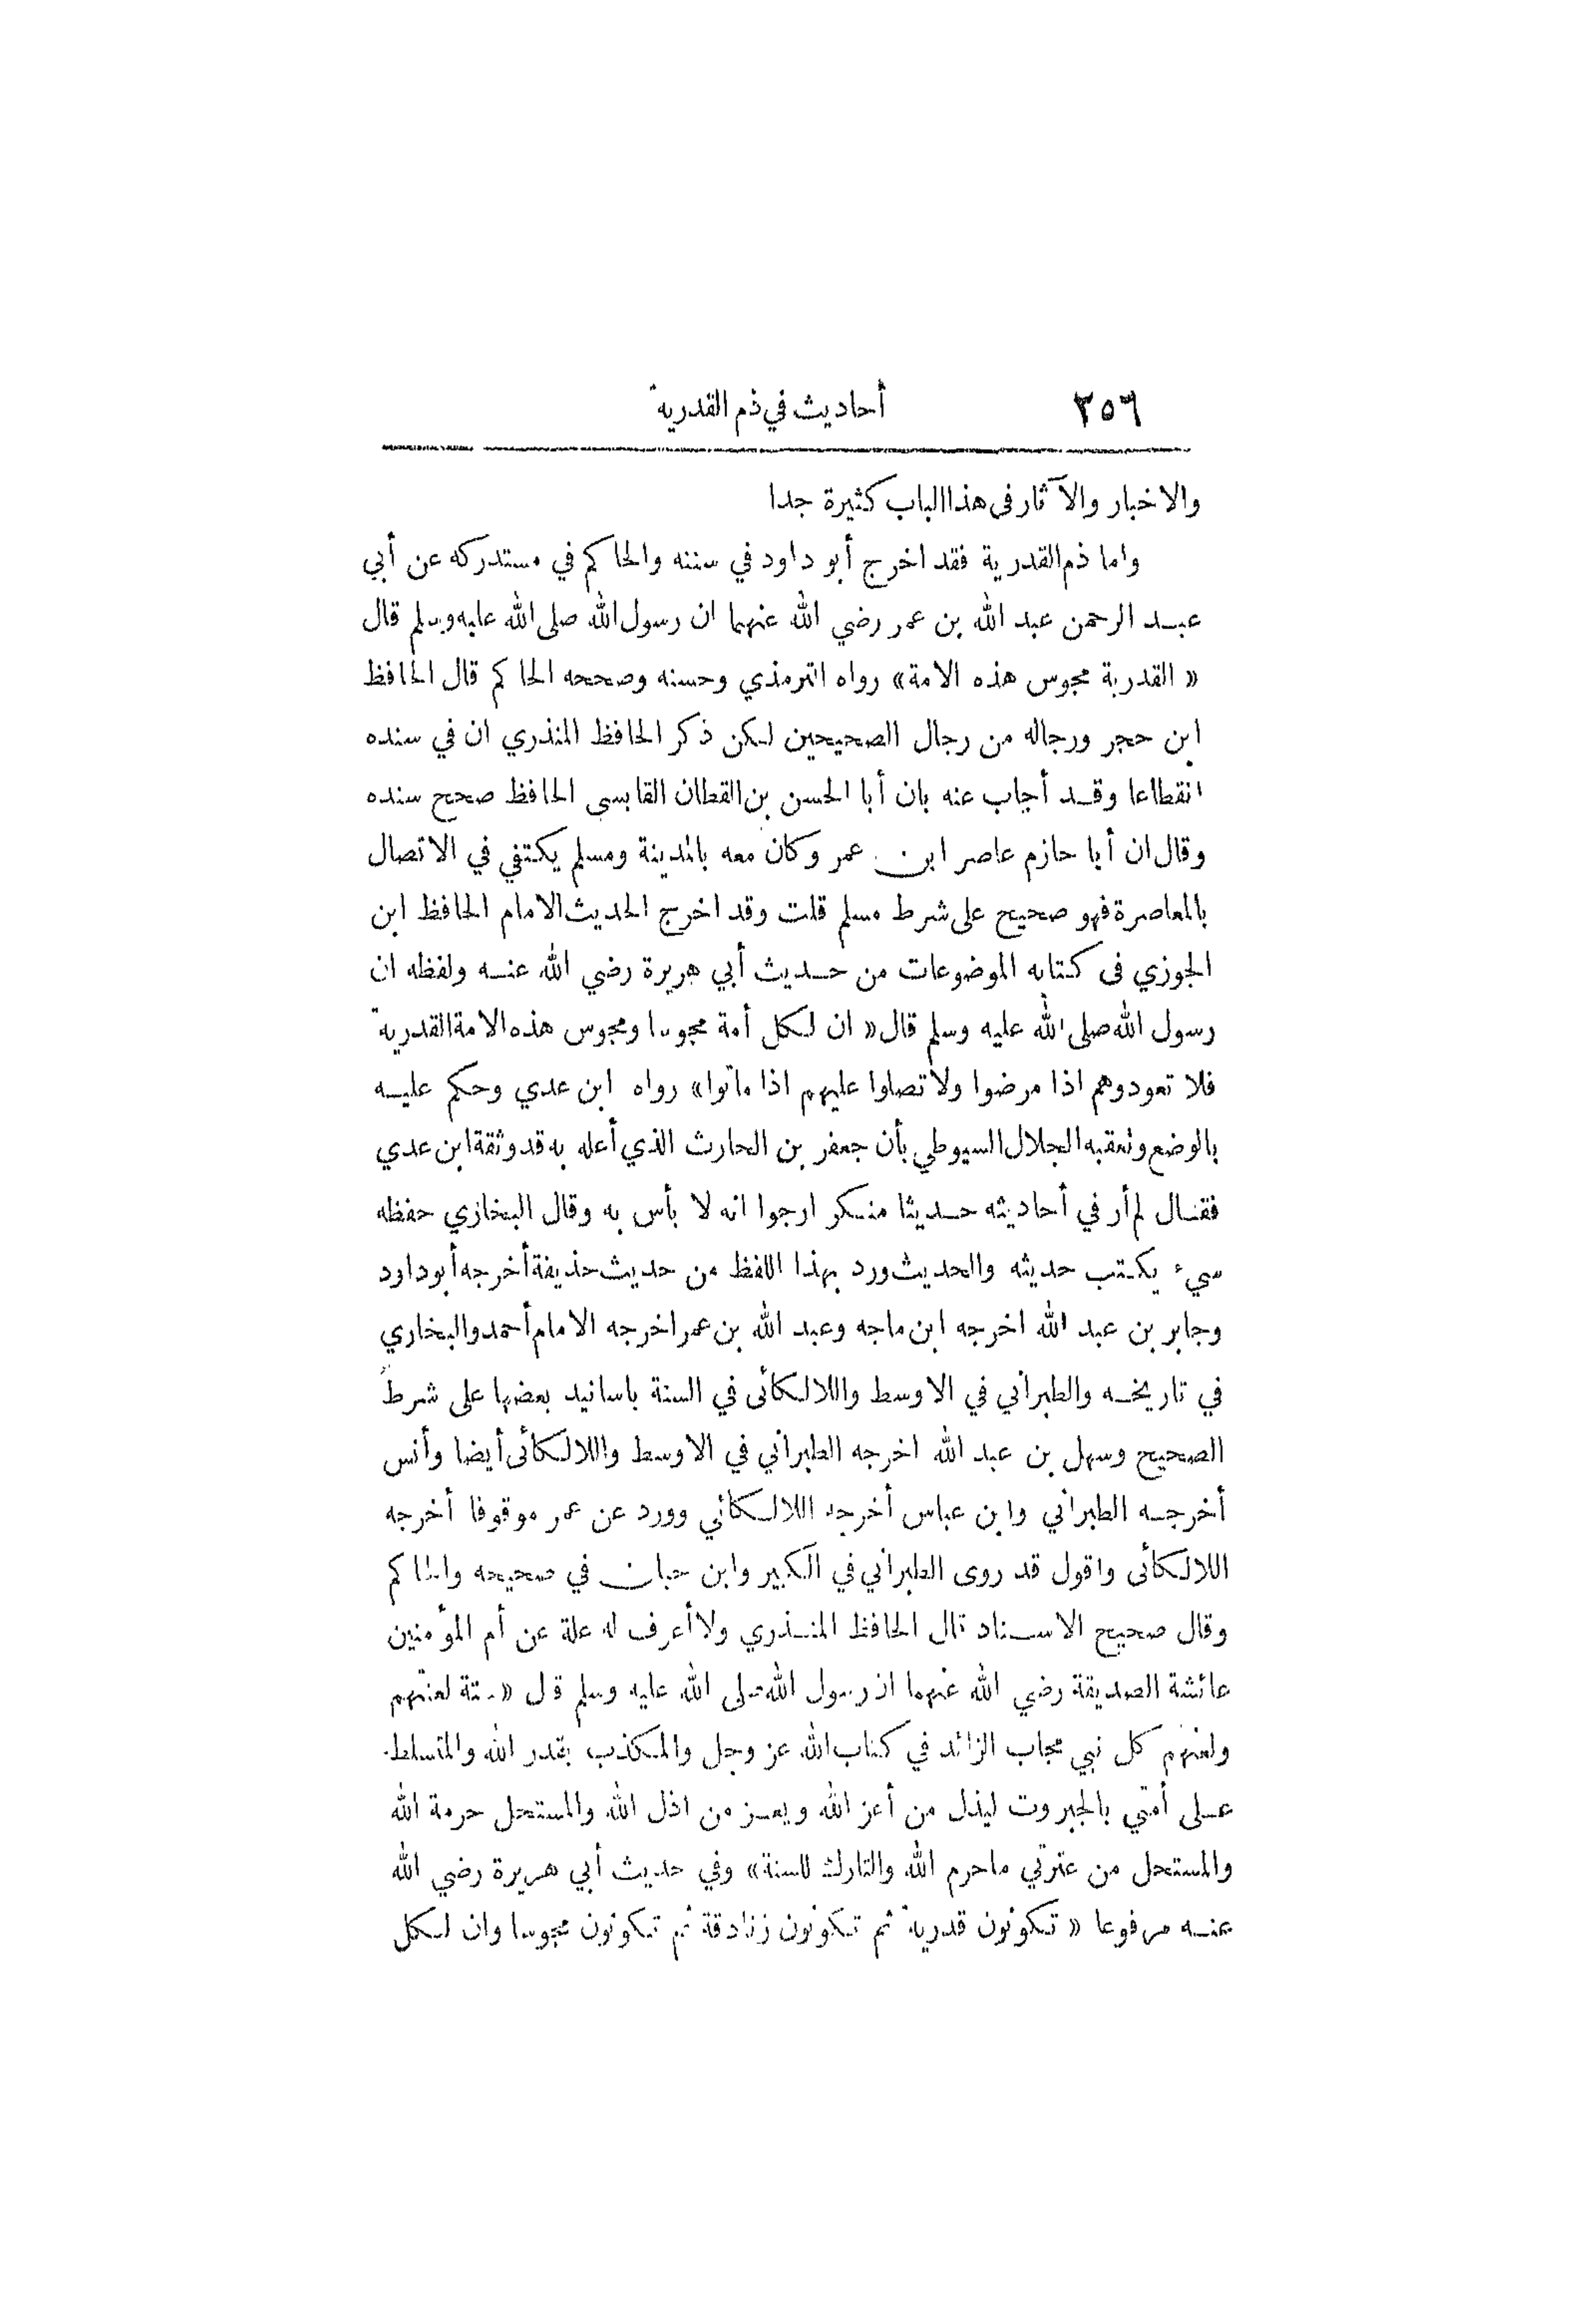 ٣٥٦ أحاديث في ذم القدرية
والاخبار والآثار فى هذا الباب كثيرة جدا
واما ذم القدرية فقد اخرج أبو داود في سننه والحاكم في مستدركه عن أبي
عبد الرحمن عبد الله بن عمر رضي الله عنهما ان رسول الله صلى الله عليه وسلم قال
« القدرية مجوس هذه الامة» رواه الترمذي وحسنه وصححه الحاكم قال الحافظ
ابن حجر ورجاله من رجال الصحيحين لكن ذكر الحافظ المنذري ان في سنده
انقطاعا وقد أجاب عنه بان أبا الحسن بن القطان القابسى الحافظ صحح سنده
وقال ان أبا حازم عاصر ابن عمر وكان معه بالمدينة ومسلم يكتفي في الاتصال
بالمعاصرة فهو صحيح على شرط مسلم قلت وقد اخرج الحديث الامام الحافظ ابن
الجوزي فى كتابه الموضوعات من حديث أبي هريرة رضي الله عنه ولفظه ان
رسول الله صلى الله عليه وسلم قال« ان لكل أمة مجوسا ومجوس هذه الامة القدرية
فلا تعودوهم اذا مرضوا ولا تصلوا عليهم اذا ماتوا» رواه ابن عدي وحكم عليه
بالوضع وتعقبه الجلال السيوطي بأن جعفر بن الحارث الذي أعله به قد وثقة ابن عدي
فقال لم أر في أحاديثه حديثا منكر ارجوا انه لا بأس به وقال البخازي حفظه
سيء يكتب حديثه والحديث ورد بهذا اللفظ من حديث حذيفة أخرجه أبو داود
وجابر بن عبد الله اخرجه ابن ماجه وعبد الله بن عمر اخرجه الامام أحمد والبخاري
في تاريخه والطبراني في الاوسط واللالكائى في السنة باسانيد بعضها على شرط
الصحيح وسهل بن عبد الله اخرجه الطبراني في الاوسط واللالكائى أيضا وأنس
أخرجه الطبراني وابن عباس أخرجه اللالكائي وورد عن عمر موقوفا أخرجه
اللالكائى واقول قد روى الطبراني في الكبير وابن حبان في صحيحه والحاكم
وقال صحيح الاسناد قال الحافظ المنذري ولا أعرف له علة عن أم المؤمنين
عائشة الصديقة رضي الله عنهما ان رسول الله صلى الله عليه وسلم قال « ستة لعنتهم
ولعنهم كل نبي مجاب الزائد في كتاب الله عز وجل والمكذب بقدر الله والمتسلط
على أمتي بالجبروت ليذل من أعز الله ويعز من اذل الله والمستحل حرمة الله
والمستحل من عترتي ما حرم الله والتارك للسنة» وفي حديث أبي هريرة رضي الله
عنه مرفوعا « تكونون قدرية ثم تكونون زنادقة ثم تكونون مجوسا وان لكل